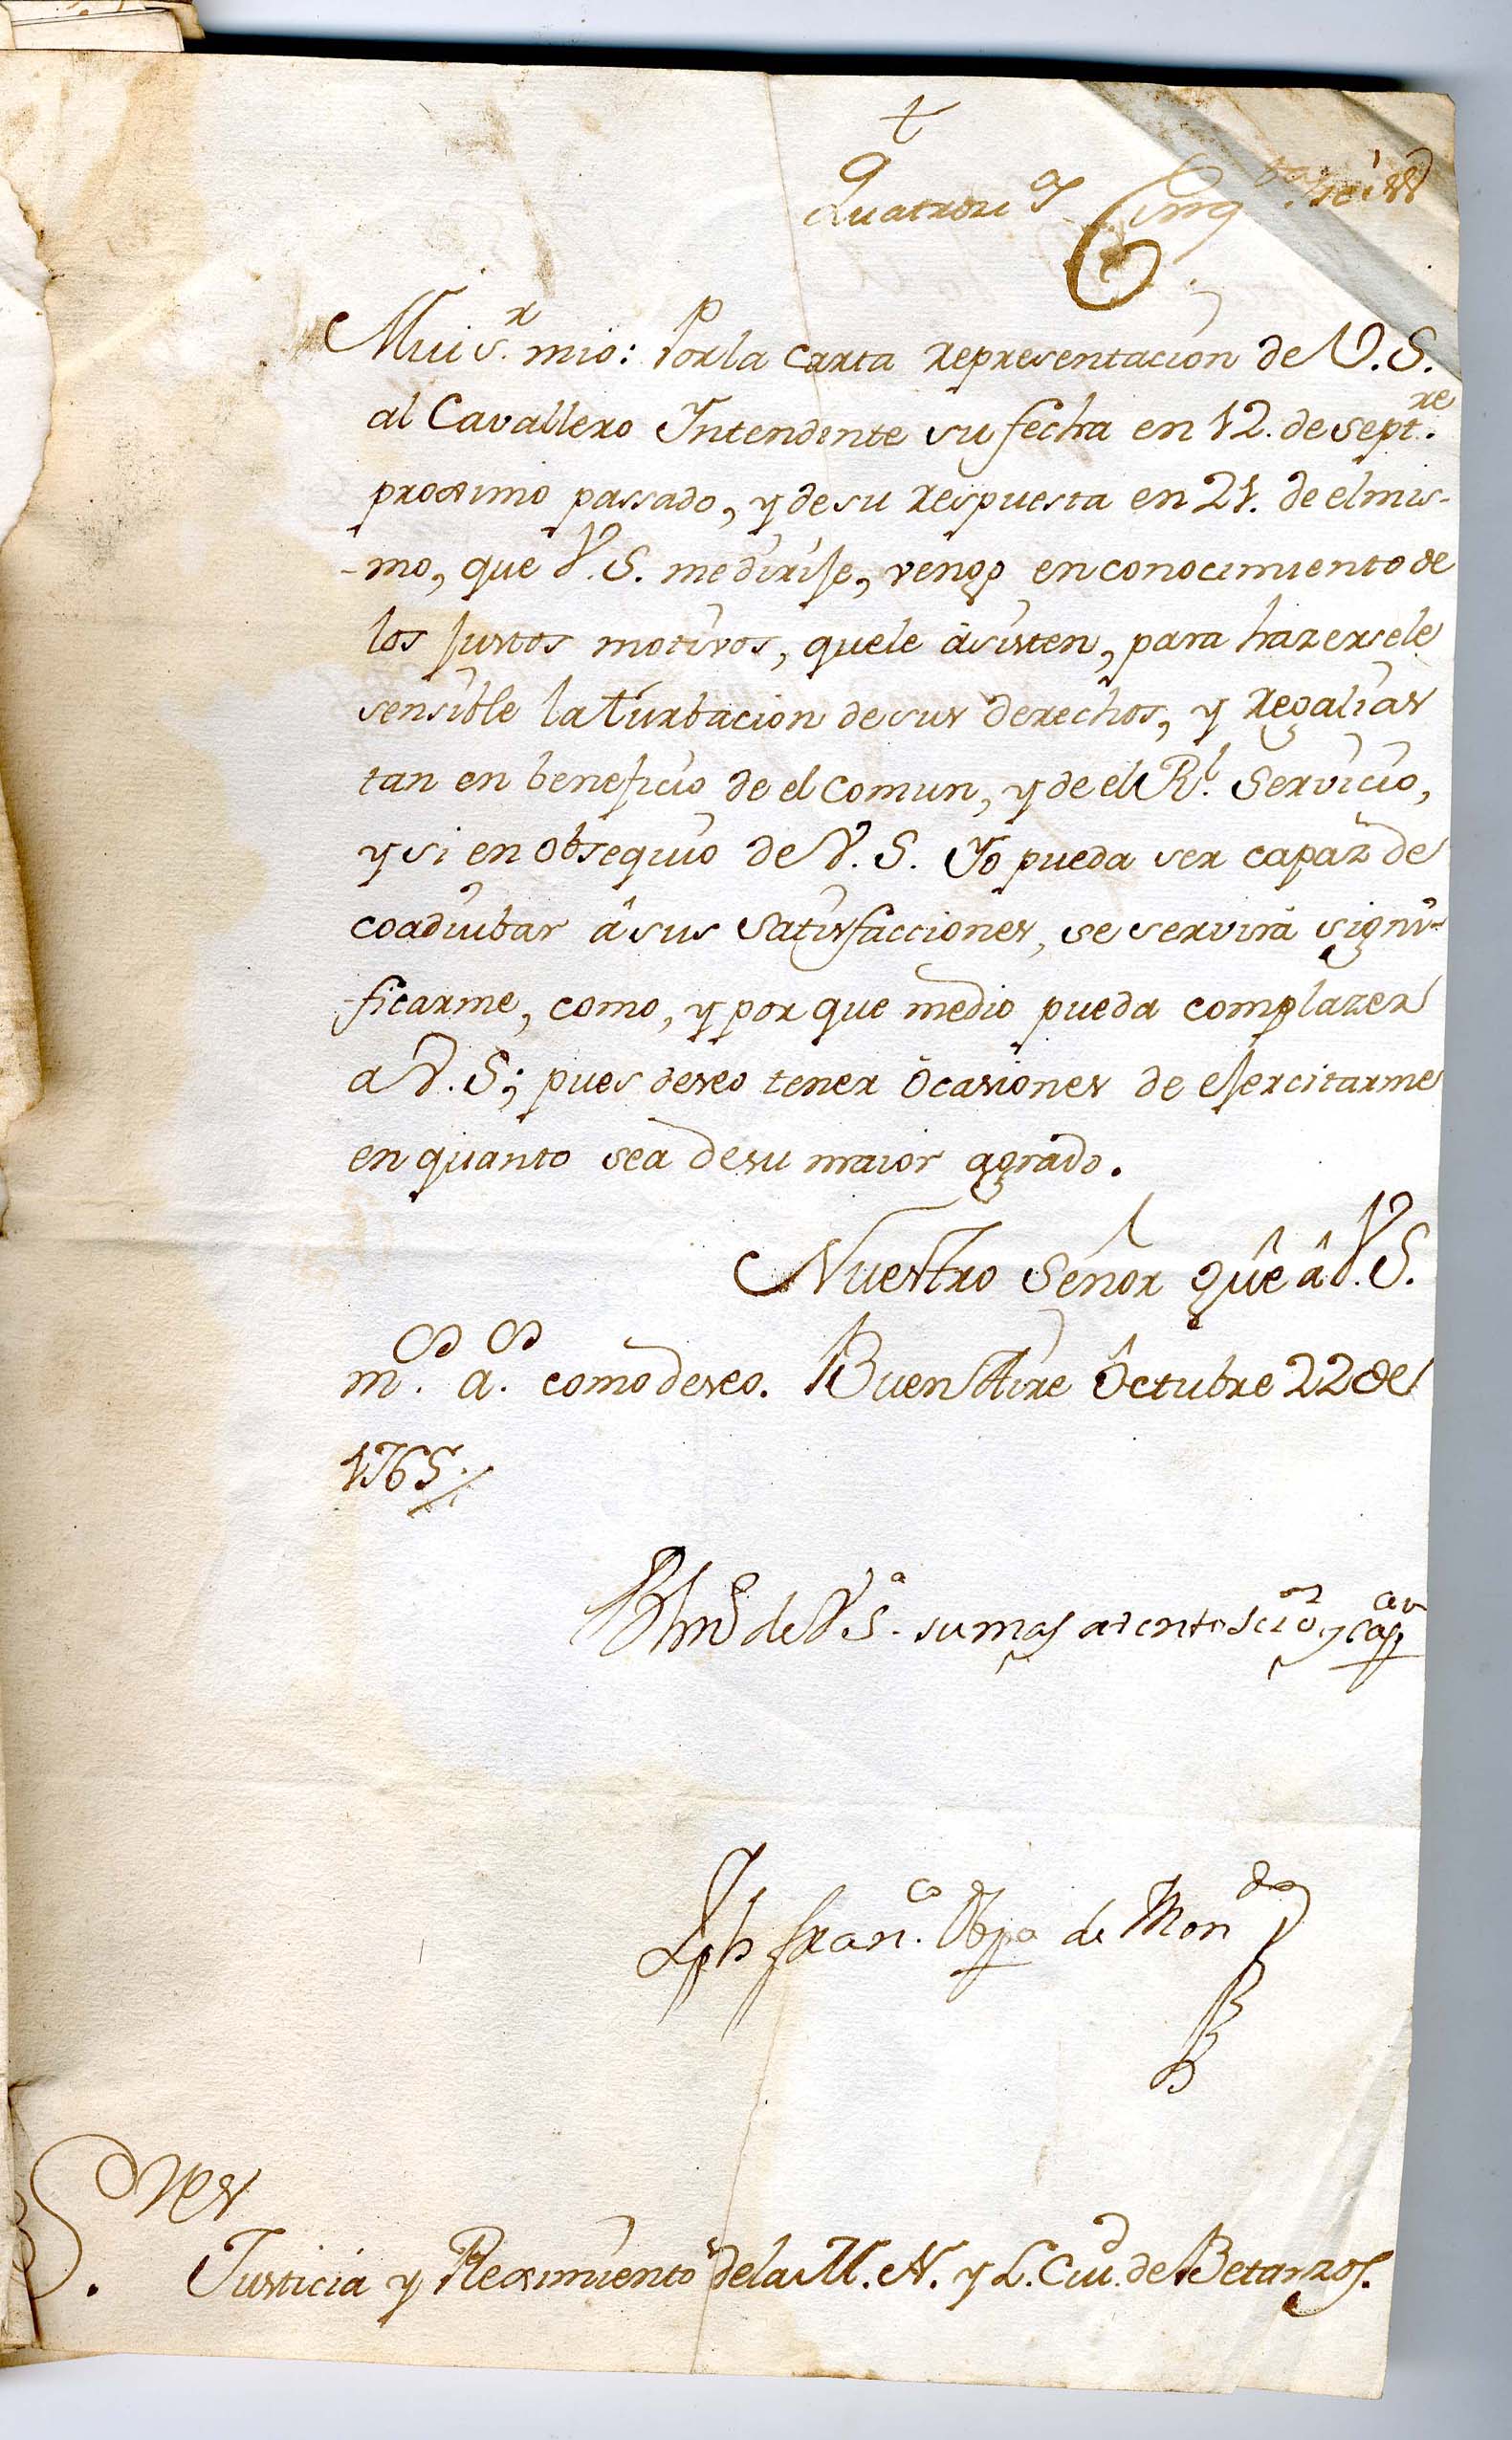 †
Quatroz.os Cinq.ta seis
Mui S.r mio: Por la carta representacion de V.S.
al Cavallero Yntendente su fecha en 12. de Sept.re
proximo passado, y de su respuesta en 21. de el mis-
-mo, que V.S. me dirije, vengo en conocimiento de
los justos motivos, que le asisten, para hazersele
sensible la turbacion de sus derechos, y Regalias
tan en beneficio de el Comun, y de el R.l Servicio,
y si en obsequio de V.S. Yo pueda ser capaz de
coadiubar â sus satisfacciones, se servirá signi-
-ficarme, como, y por que medio pueda complazer
a V.S; pues deseo tener ocasiones de ejercitarme
en quanto sea de su maior agrado.
Nuestro Señor gûe â V.S.
m.s a.s como deseo. Buen Aire Octubre 22 de
1765.
BLm de V.Sª. su mas atento Ser.or y Cap.an
Jph Fran.co Obpo de Mond.o
S.res
Justicia y Reximiento de la M.N. y L. Ciu.d de Betanzos.